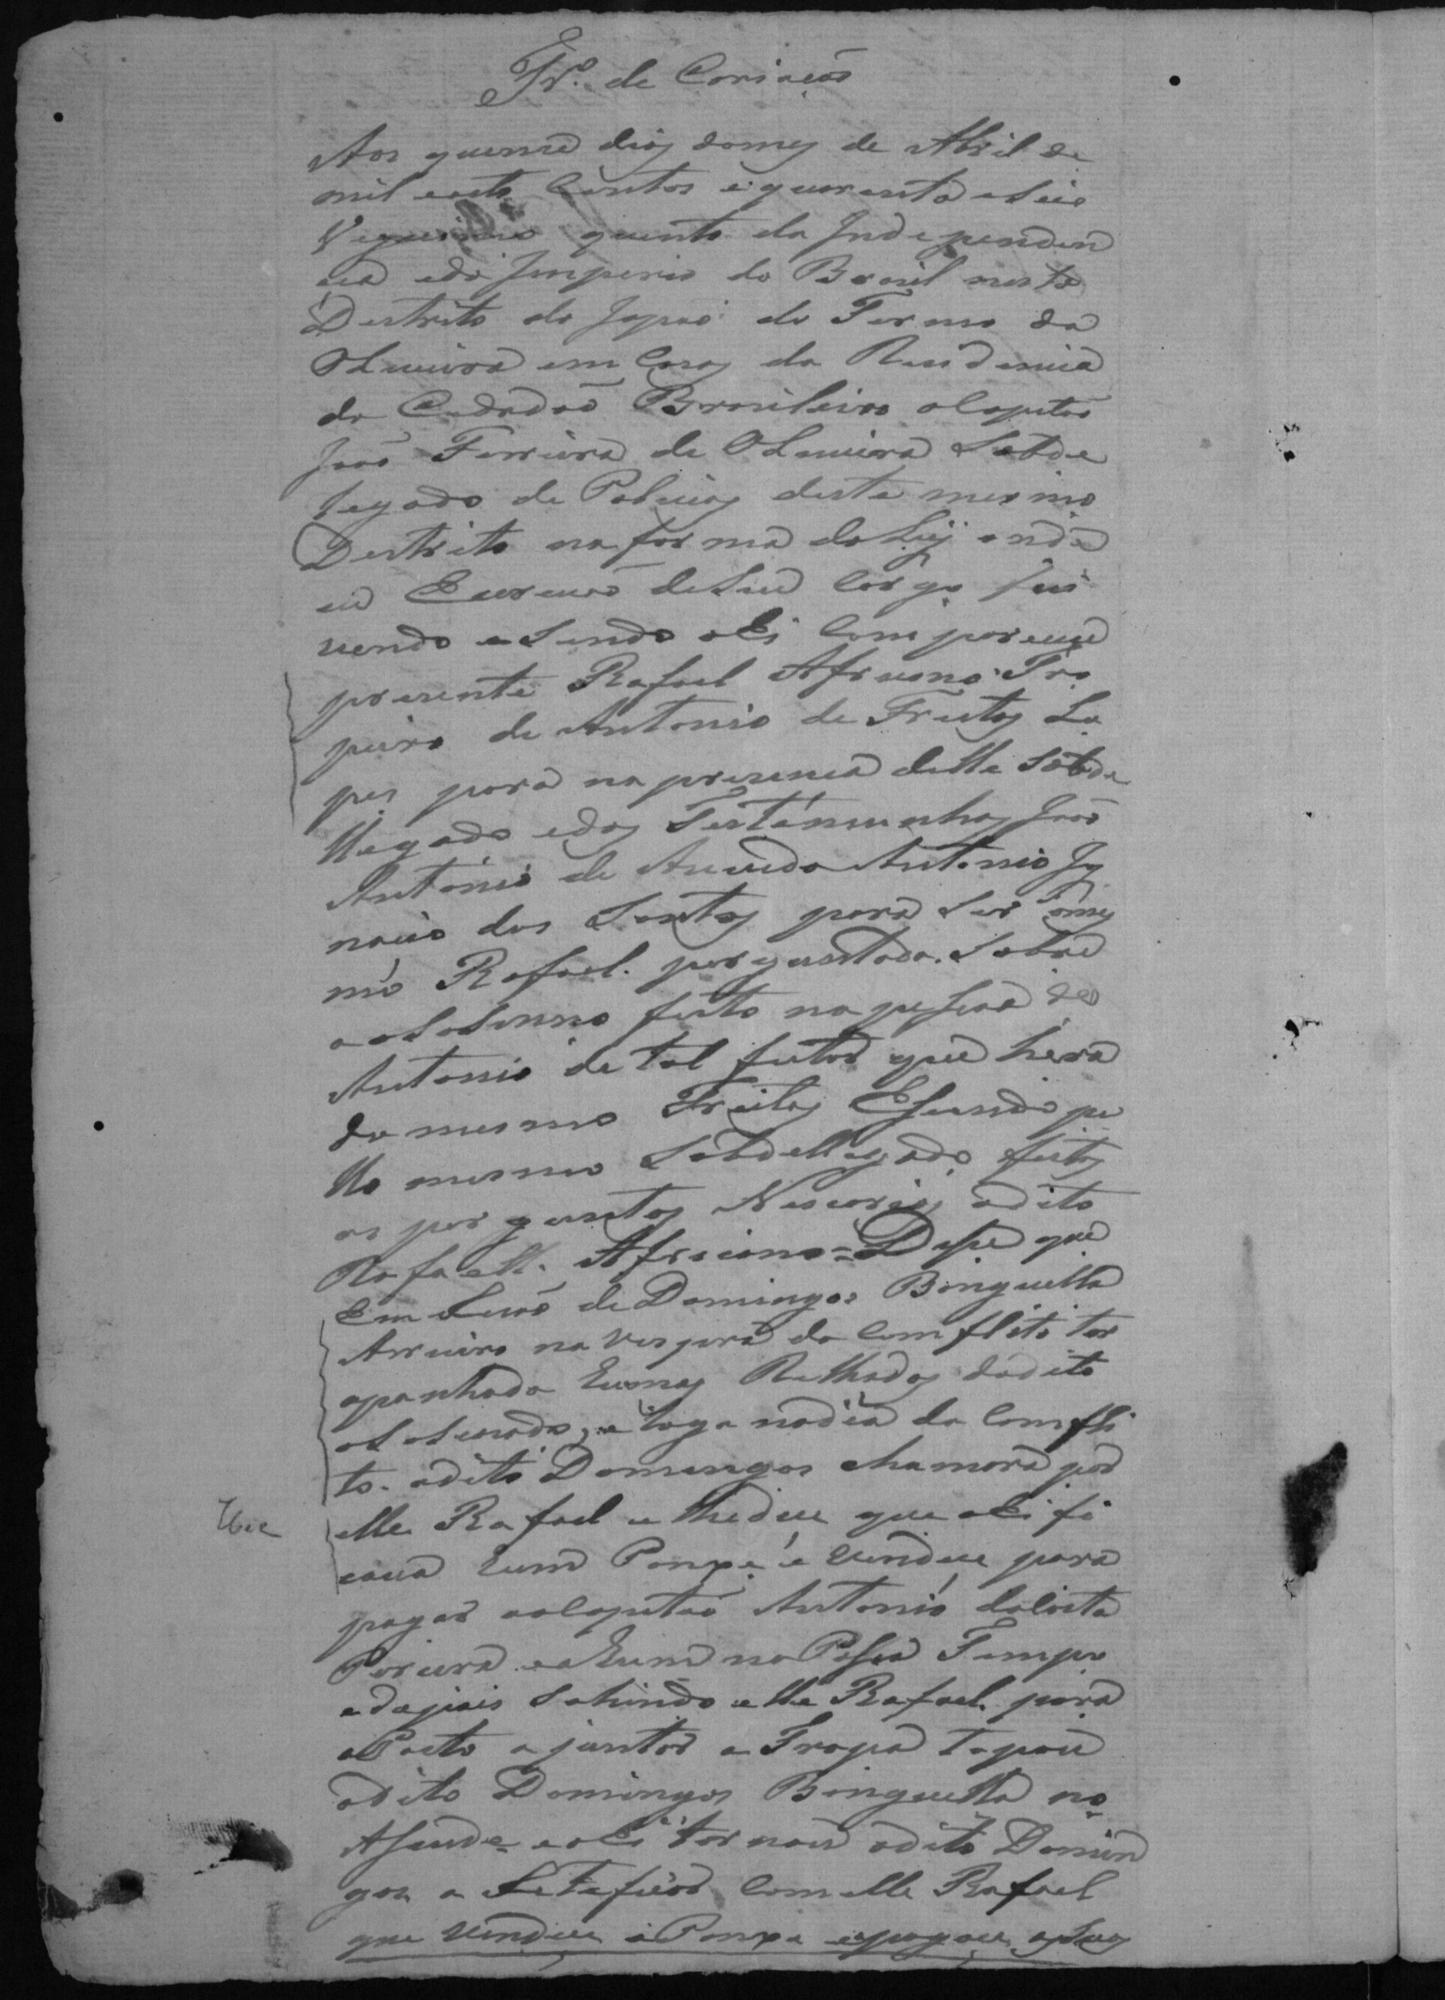 Tr.º de Cariação
Aos quinze dias domes de Abril de
mil eoito Centos e quarenta eSeis
Vigecimo quinto da Independen
cia edo Imperio do Brasil neste
Destrito do Japão do Termo da
OLiveira em Cazas da Rezidencia
do Cidadão Brasileiro oCapitão
João Ferreira de OLiveira Sobde
legado de Policia deste mesmo
Destrito na forma da Ley onde
eu Escrivão deSeu Cargo fui
vendo eSendo ahi Comparece
prezente Rafael Africano Tro
peiro de Antonio de Freitas Lo
pes para na prezencia delle Sobde
llegado edas Testemunhas João
Antonio de Azevedo Antonio Ig
nacio dos Santos para Ser omes
mo Rafael perguntado Sobre
o aSaSinno feito na peSoa de
Antonio de tal feitor que hera
do mesmo Freitas ESendo pe
llo mesmo Sobdellegado feitas
as perguntas Nescarias odito
Rafaell Africano = DiSe que
Em Rezão de Domingos Binguella
Arrieiro na vespera do Comflito ter
apanhado humas Relhadas dodito
aSaSinado, e logo nodia do Comfli
to odito Domingos chamara por
elle Rafael e lhedice que ahi fi
cava hum Ponxe e vendece para
pagar aoCapitão Antonio daCosta
Pereira e a hum no PaSa Tempo
edepois Sahindo elle Rafael para
oPasto ajuntar a Tropa topou
odito Domingos Binguella no
ASude e ahi tornou odito Domin
gos a Reteficar Com elle Rafael
que vendece o Ponxe epagace aSuas